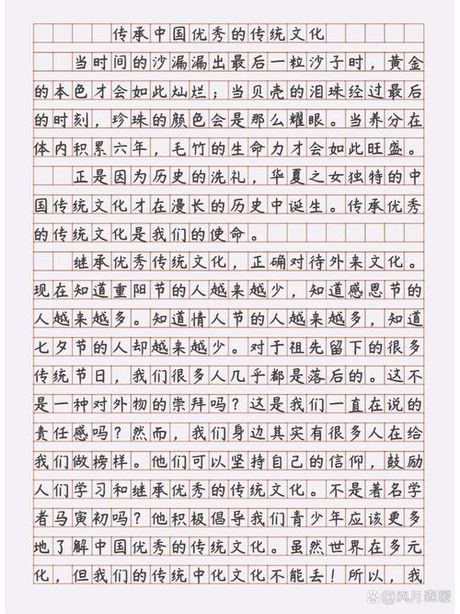 传承中国优秀的传统文化
当时间的沙漏漏出最后一粒沙子时，黄金
的本色才会如此灿烂；当贝壳的泪珠经过最后
的时刻，珍珠的颜色会是那么耀眼。当养分在
体内积累六年，毛竹的生命力才会如此旺盛。
正是因为历史的洗礼，华夏之女独特的中
国传统文化才在漫长的历史中诞生。传承优秀
的传统文化是我们的使命。
继承优秀传统文化，正确对待外来文化。
现在知道重阳节的人越来越少，知道感恩节的
人越来越多。知道情人节的人越来越多，知道
七夕节的人却越来越少。对于祖先留下的很多
传统节日，我们很多人几乎都是落后的。这不
是一种对外物的崇拜吗？这是我们一直在说的
责任感吗？然而，我们身边其实有很多人在给
我们做榜样。他们可以坚持自己的信仰，鼓励
人们学习和继承优秀的传统文化。不是著名学
者马寅初吗？他积极倡导我们青少年应该更多
地了解中国优秀的传统文化。虽然世界在多元
化，但我们的传统中化文化不能丢！所以，我